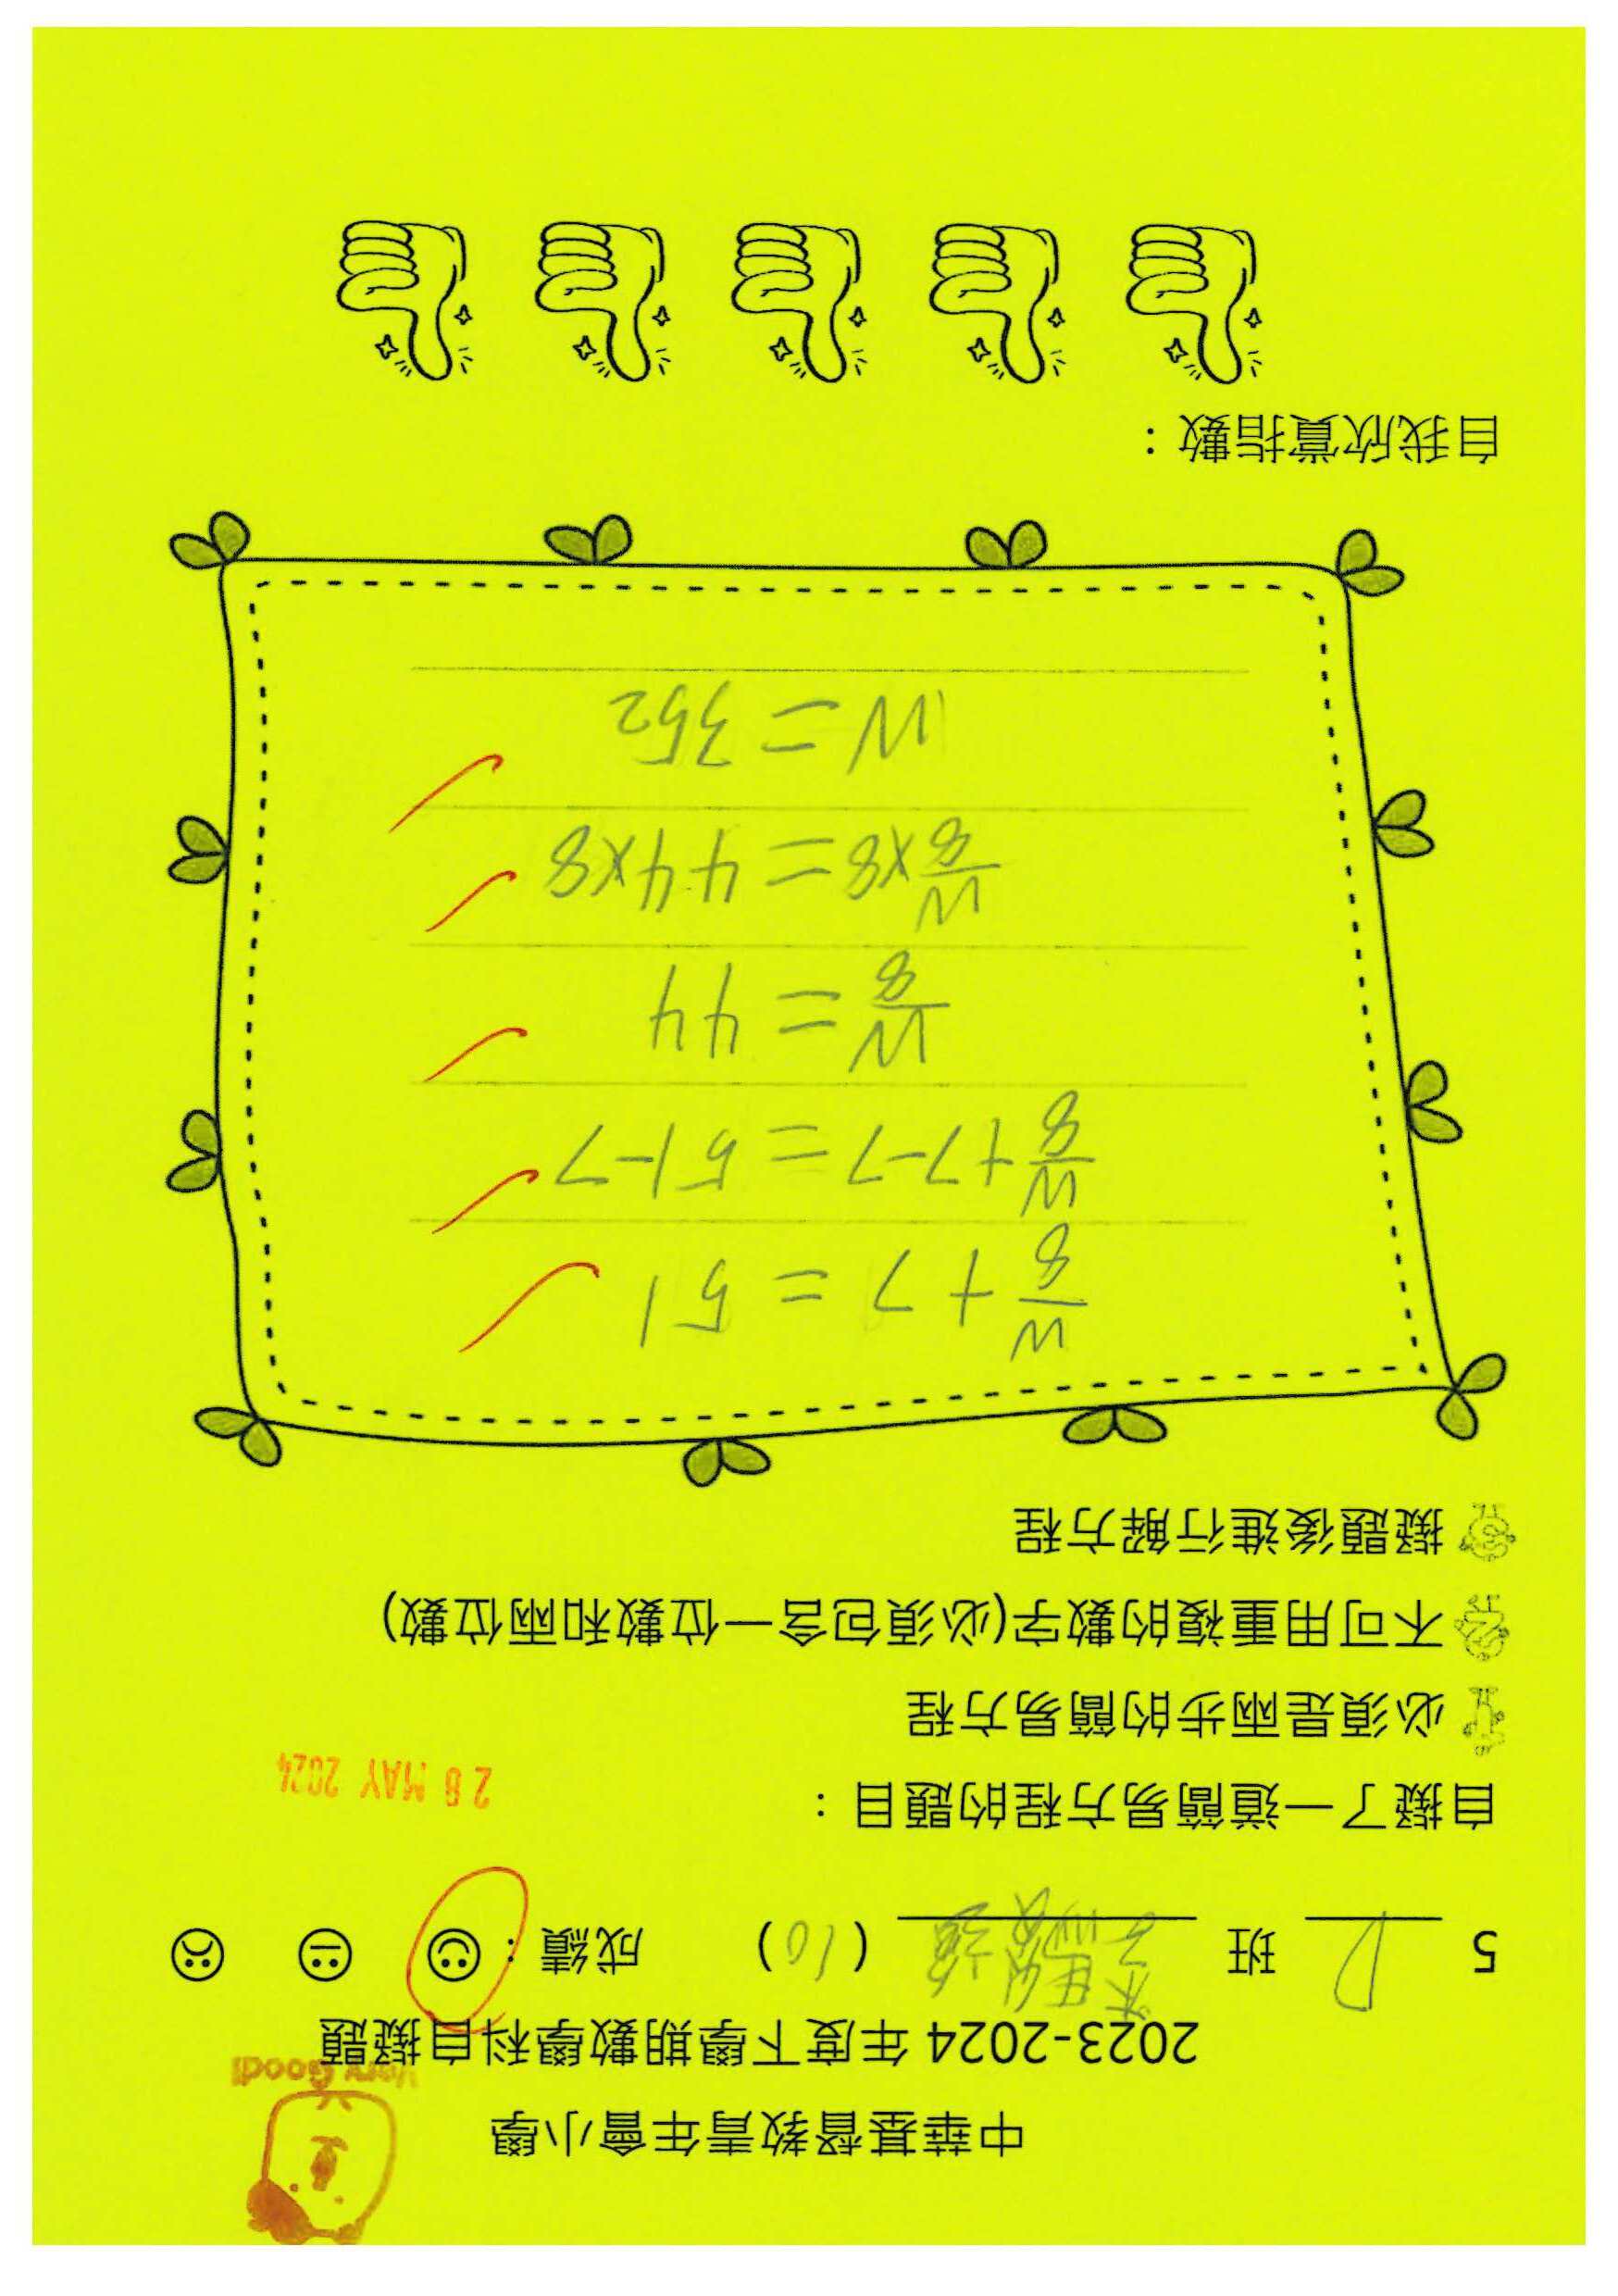 中華基督教青年會小學
Very Good!
2023-2024 年度下學期數學科自擬題
5 D 班 (10) 成績：
自擬了一道簡易方程的題目：
28 MAY 2024
必須是兩步的簡易方程
不可用重複的數字(必須包含一位數和兩位數)
擬題後進行解方程
w/8 + 7 = 51
w/8 + 7 - 7 = 51 - 7
w/8 = 44
w/8 × 8 = 44 × 8
w = 352
自我欣賞指數：